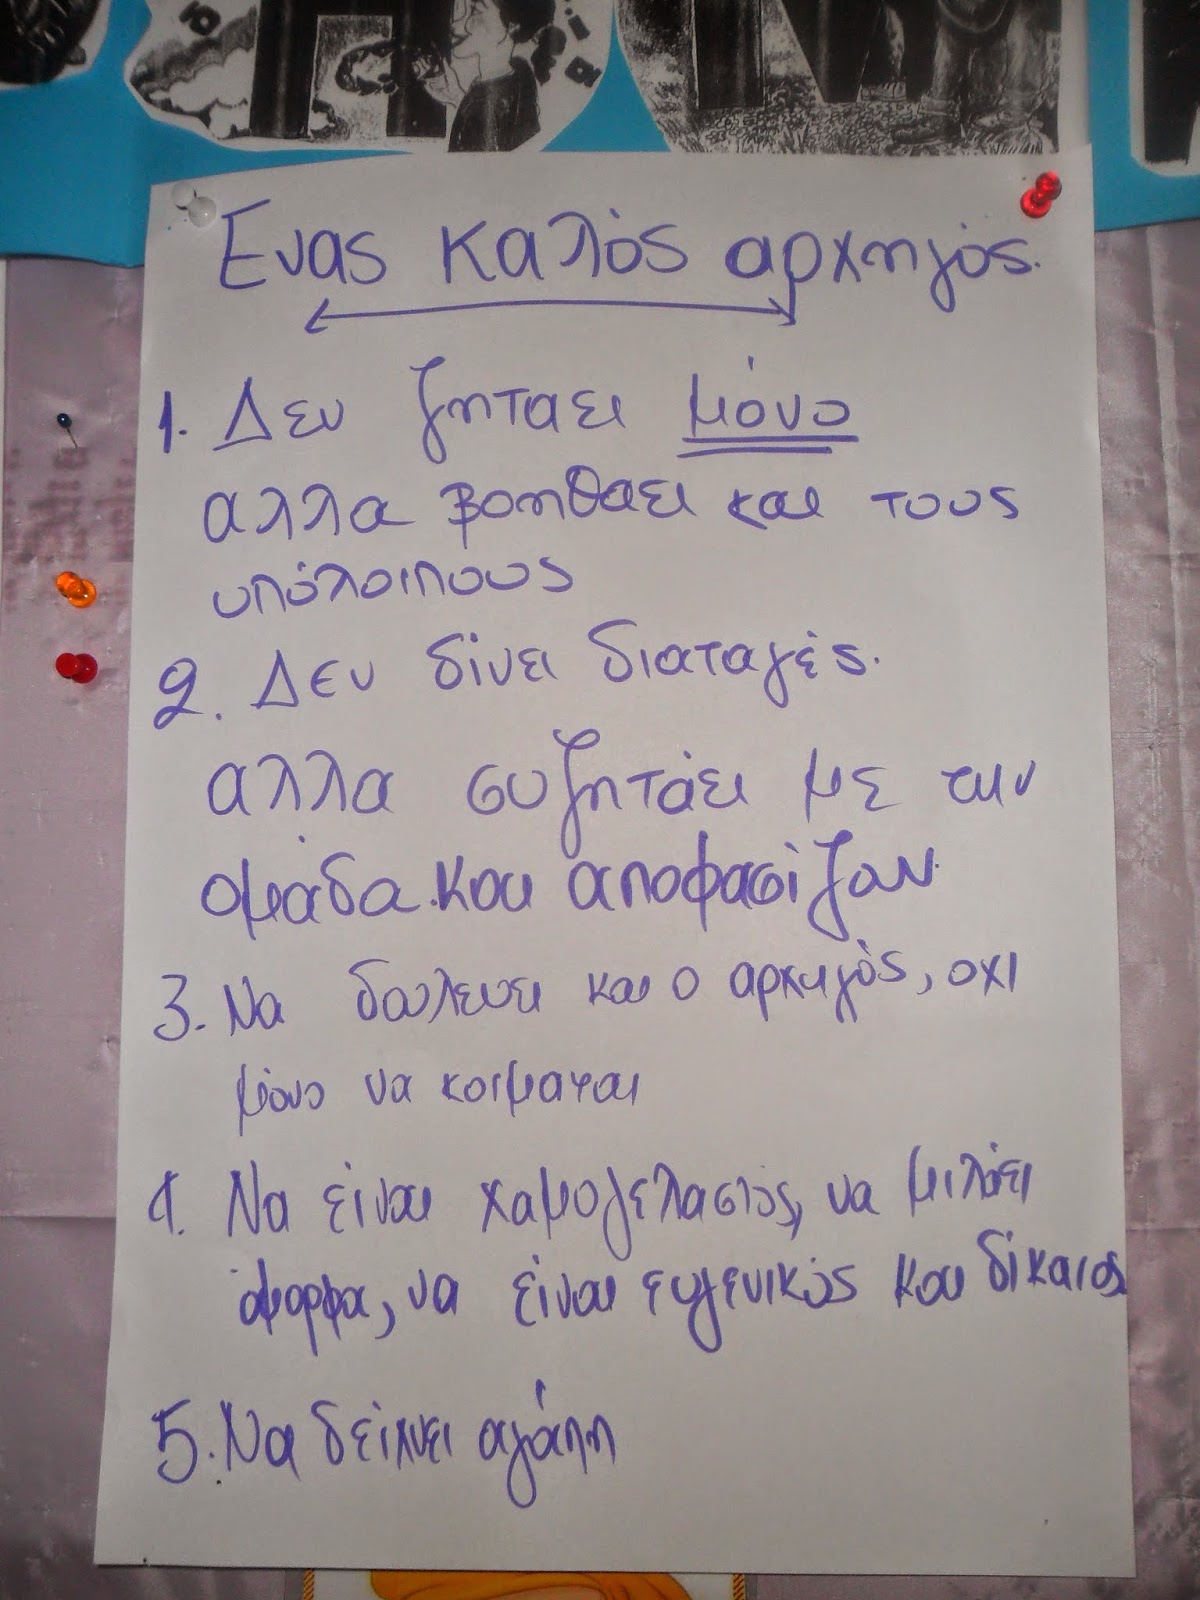 Ενας καλός αρχηγός.
1. Δεν ζηταει μόνο
αλλα βοηθαει και τους
υπόλοιπους
2. Δεν δίνει διαταγές.
αλλα συζητάει με την
ομάδα. και αποφασίζουν.
3. Να δουλευει και ο αρχηγός, οχι
μόνο να κοιμαται
4. Να είναι χαμογελαστός, να μιλάει
όμορφα, να είναι ευγενικός και δίκαιος
5. Να δείχνει αγάπη